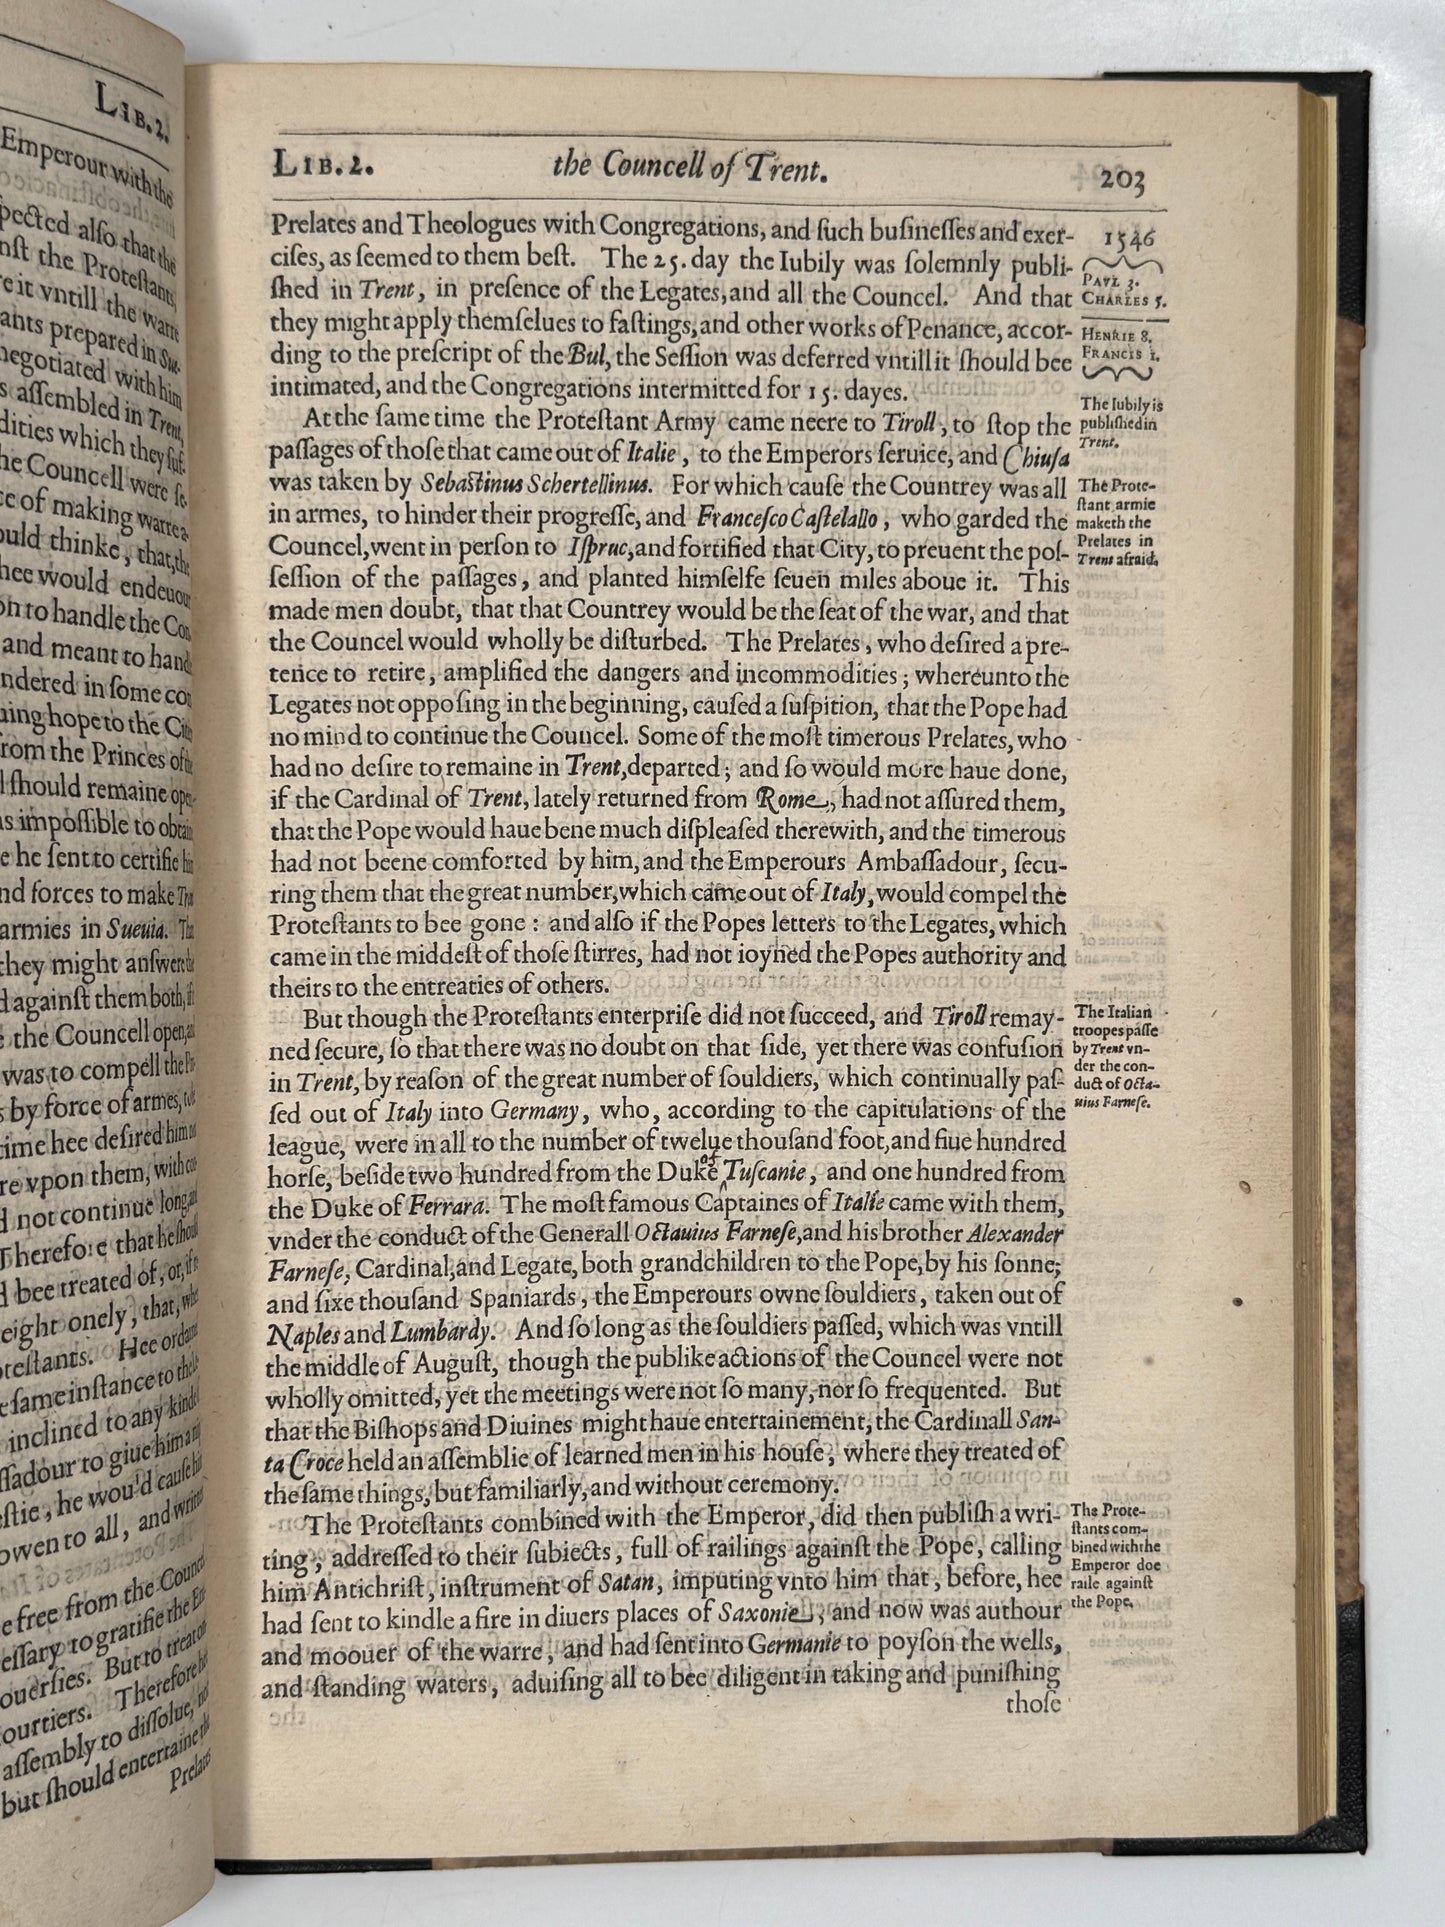 LIB. 2.
Emperour with the
pected alſo that the
nſt the Proteſtants,
re it vntill the warre
ants prepared in Sue-
negotiated with him
s aſſembled in Trent,
dities which they ſuf-
he Councell were ſe-
ce of making warre a-
ould thinke, that, the
hee would endeuour
on to handle the Con
and meant to hand
ndered in ſome con
uing hope to the Citi
rom the Princes of the
l ſhould remaine open,
as impoſſible to obtain
e he ſent to certifie hi
nd forces to make Tren
armies in Sueuia. The
they might anſwere the
d againſt them both, if
e the Councell open, and
was to compell the Pro
s by force of armes,
time hee deſired him
re vpon them, with
d not continue long, and
Therefore that he ſhould
d bee treated of, or, if
eight onely, that, when
oteſtants. Hee ordain
e ſame inſtance to theſe
inclined to any kinde
ſſadour to giue him any
eſtie, he wou'd cauſe his
owen to all, and written
e free from the Councel
eſſary to gratifie the Em
ouerſies. But to treat on
ourtiers. Therefore hee
aſſembly to diſſolue, nor
but ſhould entertaine the
Prelates
LIB. 2. the Councell of Trent. 203
Prelates and Theologues with Congregations, and ſuch buſineſſes and exer-
ciſes, as ſeemed to them beſt. The 25. day the Iubily was ſolemnly publi-
ſhed in Trent, in preſence of the Legates, and all the Councel. And that
they might apply themſelues to faſtings, and other works of Penance, accor-
ding to the preſcript of the Bul, the Seſſion was deferred vntill it ſhould bee
intimated, and the Congregations intermitted for 15. dayes.
At the ſame time the Proteſtant Army came neere to Tiroll, to ſtop the
paſſages of thoſe that came out of Italie, to the Emperors ſeruice, and Chiuſa
was taken by Sebaſtinus Schertellinus. For which cauſe the Countrey was all
in armes, to hinder their progreſſe, and Franceſco Caſtelallo, who garded the
Councel, went in perſon to Iſpruc, and fortified that City, to preuent the poſ-
ſeſſion of the paſſages, and planted himſelfe ſeuen miles aboue it. This
made men doubt, that that Countrey would be the ſeat of the war, and that
the Councel would wholly be diſturbed. The Prelates, who deſired a pre-
tence to retire, amplified the dangers and incommodities; whereunto the
Legates not oppoſing in the beginning, cauſed a ſuſpition, that the Pope had
no mind to continue the Councel. Some of the moſt timerous Prelates, who
had no deſire to remaine in Trent, departed; and ſo would more haue done,
if the Cardinal of Trent, lately returned from Rome, had not aſſured them,
that the Pope would haue bene much diſpleaſed therewith, and the timerous
had not beene comforted by him, and the Emperours Ambaſſadour, ſecu-
ring them that the great number, which came out of Italy, would compel the
Proteſtants to bee gone: and alſo if the Popes letters to the Legates, which
came in the middeſt of thoſe ſtirres, had not ioyned the Popes authority and
theirs to the entreaties of others.
But though the Proteſtants enterpriſe did not ſucceed, and Tiroll remay-
ned ſecure, ſo that there was no doubt on that ſide, yet there was confuſion
in Trent, by reaſon of the great number of ſouldiers, which continually paſ-
ſed out of Italy into Germany, who, according to the capitulations of the
league, were in all to the number of twelue thouſand foot, and fiue hundred
horſe, beſide two hundred from the Duke of Tuſcanie, and one hundred from
the Duke of Ferrara. The moſt famous Captaines of Italie came with them,
vnder the conduct of the Generall Octauius Farneſe, and his brother Alexander
Farneſe, Cardinal, and Legate, both grandchildren to the Pope, by his ſonne;
and ſixe thouſand Spaniards, the Emperours owne ſouldiers, taken out of
Naples and Lumbardy. And ſo long as the ſouldiers paſſed, which was vntill
the middle of Auguſt, though the publike actions of the Councel were not
wholly omitted, yet the meetings were not ſo many, nor ſo frequented. But
that the Biſhops and Diuines might haue entertainement, the Cardinall San-
ta Croce held an aſſemblie of learned men in his houſe, where they treated of
the ſame things, but familiarly, and without ceremony.
The Proteſtants combined with the Emperor, did then publiſh a wri-
ting, addreſſed to their ſubiects, full of railings againſt the Pope, calling
him Antichriſt, inſtrument of Satan, imputing vnto him that, before, hee
had ſent to kindle a fire in diuers places of Saxonie, and now was authour
and moouer of the warre, and had ſent into Germanie to poyſon the wells,
and ſtanding waters, aduiſing all to bee diligent in taking and puniſhing
thoſe
1546
PAVL 3.
CHARLES 5.
HENRIE 8.
FRANCIS 1.
The Iubily is
publiſhed in
Trent.
The Prote-
ſtant armie
maketh the
Prelates in
Trent afraid.
The Italian
troopes paſſe
by Trent vn-
der the con-
duct of Octa-
uius Farneſe.
The Prote-
ſtants com-
bined with the
Emperor doe
raile againſt
the Pope.